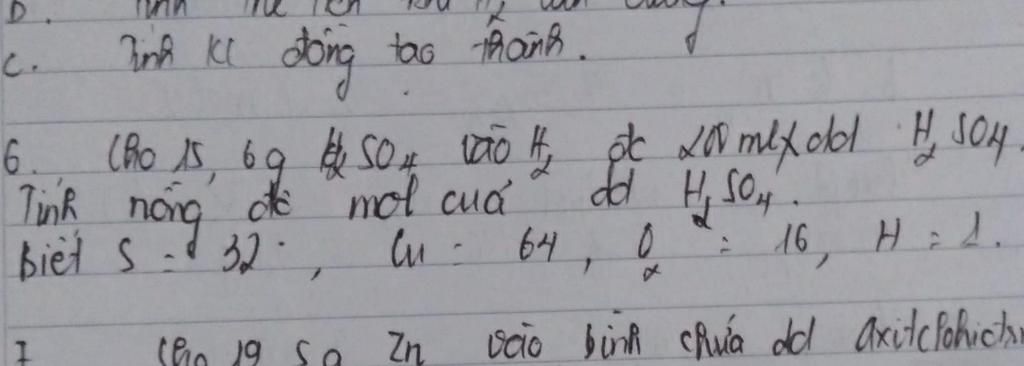 C. Tính Kl đồng tạo thành.
6. Cho 15,6g H2SO4 vào H2 đc 200 ml dd H2SO4.
Tính nồng độ mol cuả dd H2SO4.
biết S = 32, Cu = 64, O2 = 16, H = 1.
7 Cho 19,5g Zn vào bình chứa dd axit